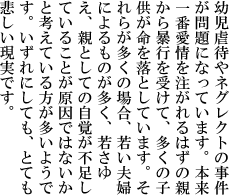 幼児虐待やネグレクトの事件
が問題になっています。本来
一番愛情を注がれるはずの親
から暴行を受けて、多くの子
供が命を落としています。そ
れらが多くの場合、若い夫婦
によるものが多く、若さゆ
え、親としての自覚が不足し
ていることが原因ではないか
と考えている方が多いようで
す。いずれにしても、とても
悲しい現実です。